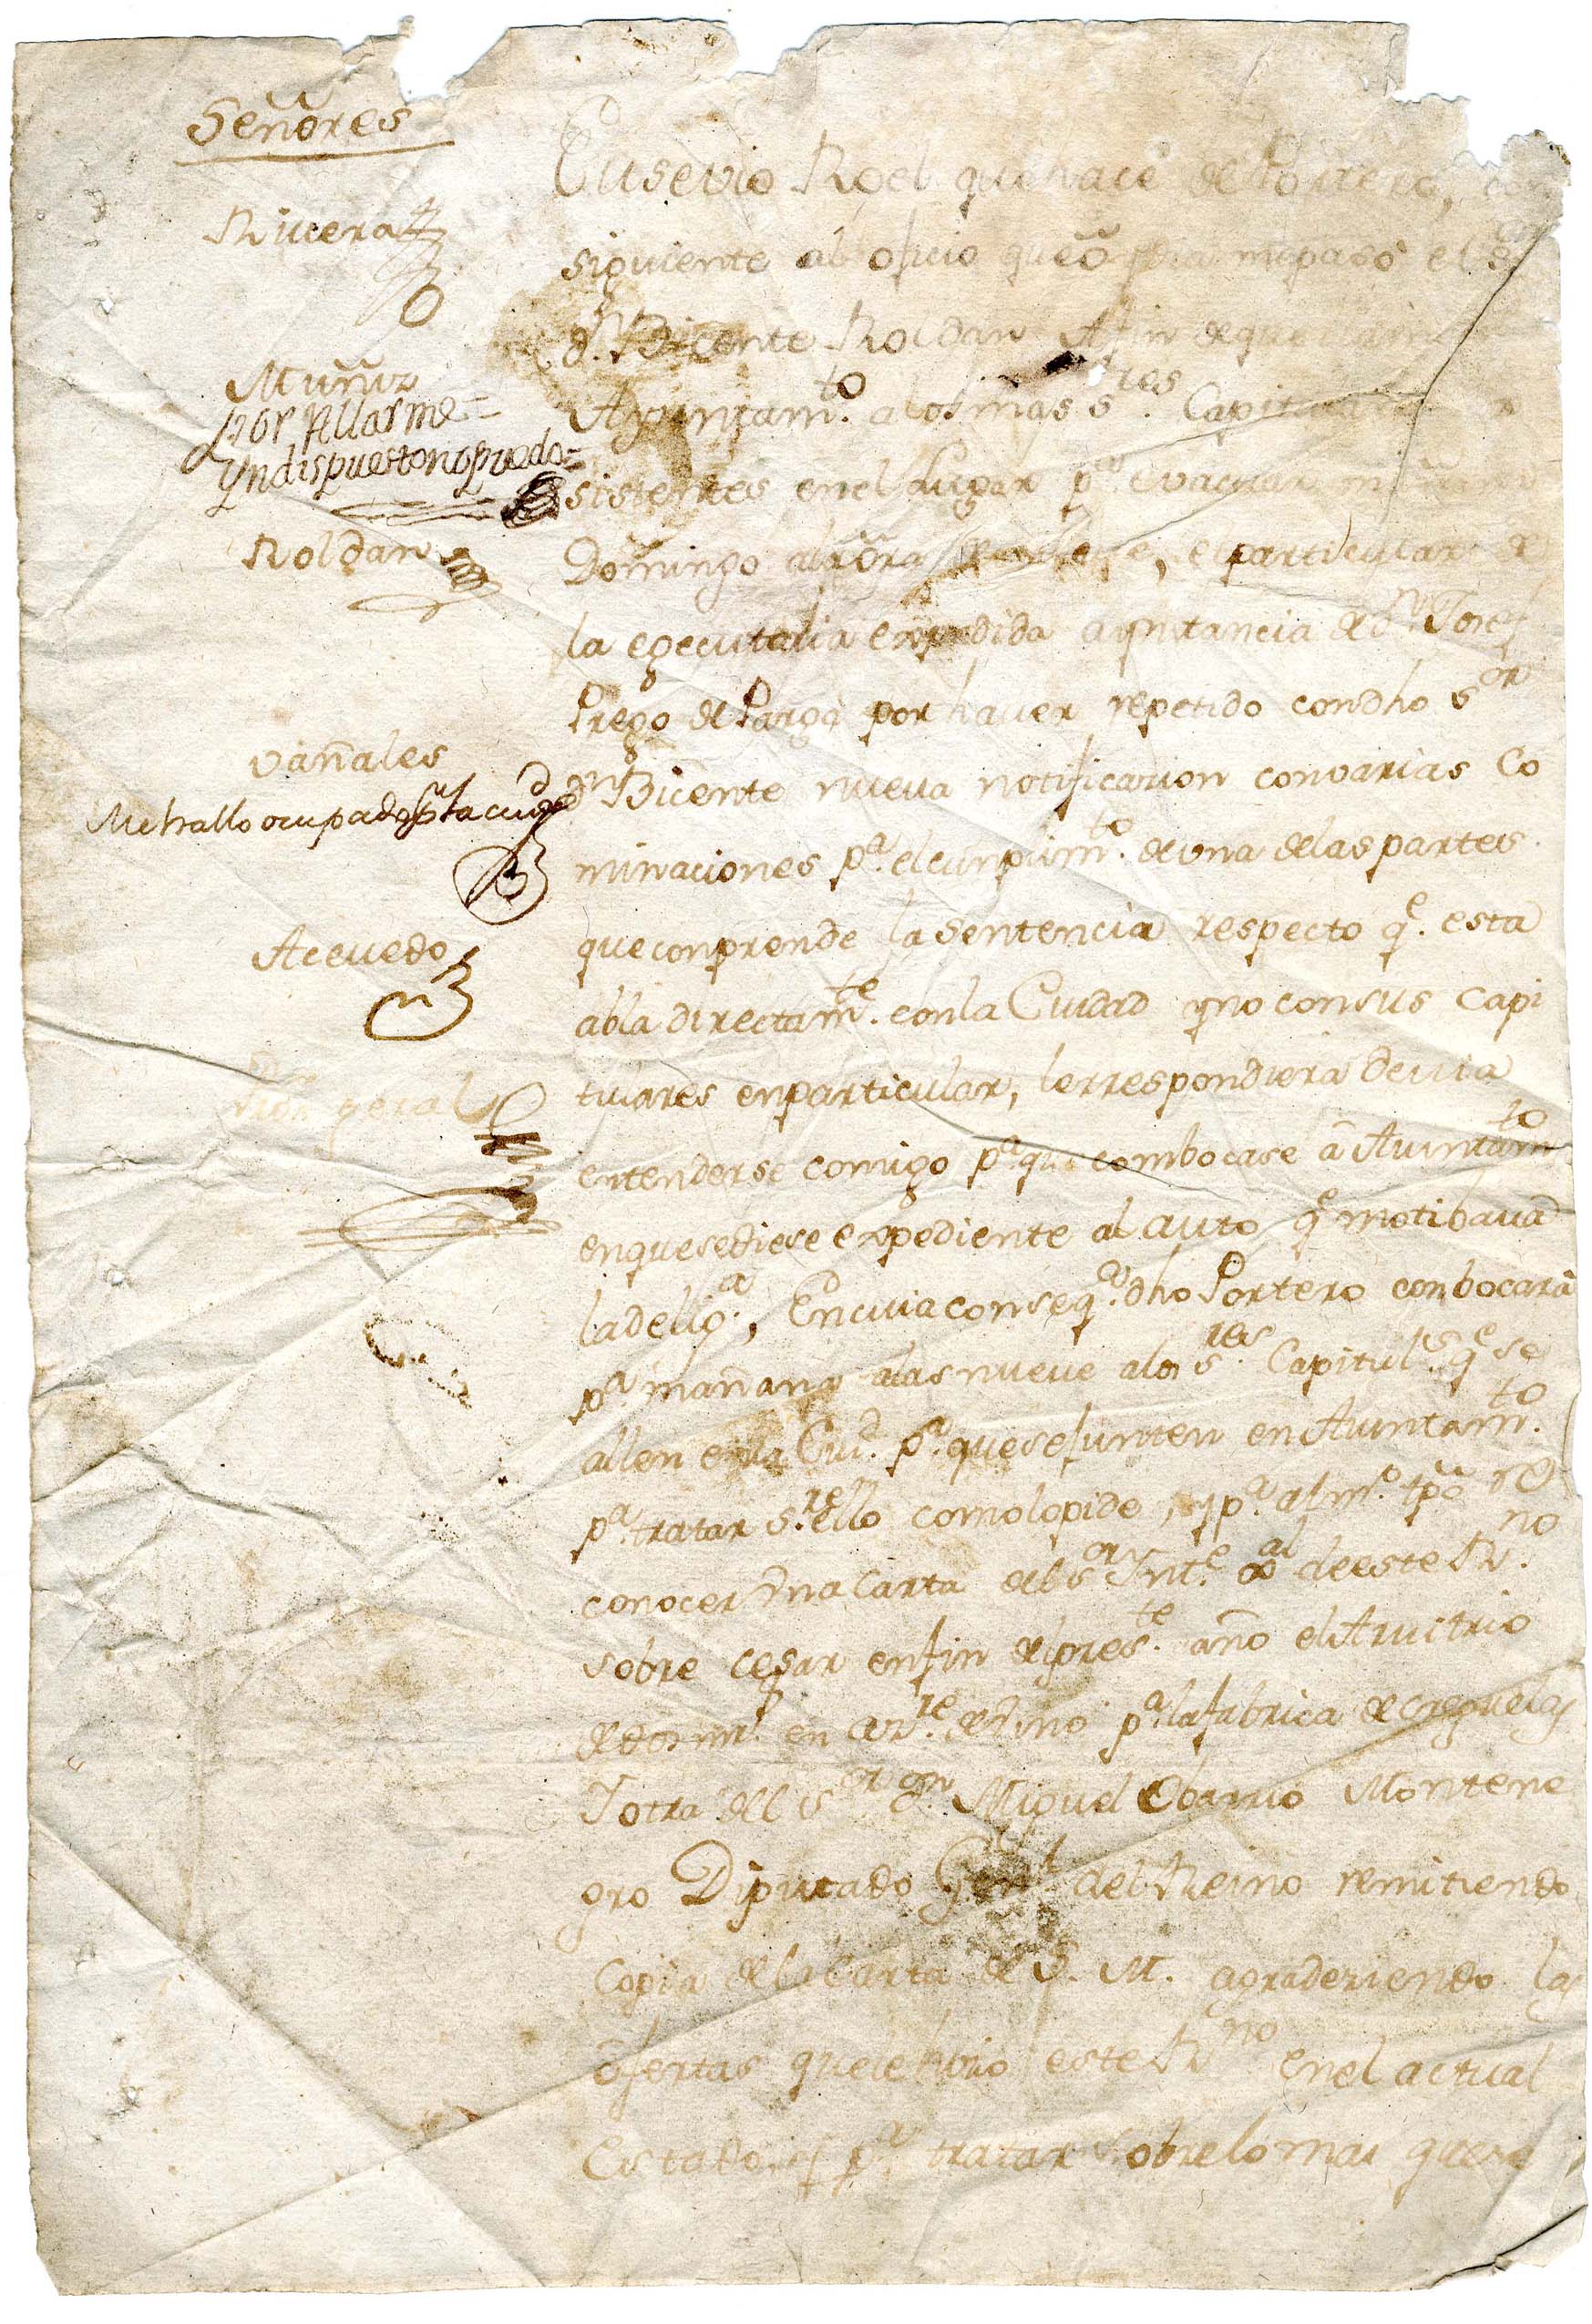 Señores
Rivera
Muñiz
por Allarme
Yndispuesto no puedo
Roldan
Vañales
Me hallo ocupado
Acevedo
Prór geral
Eusevio Roel que hace de Portero, con
siguiente al oficio que oŷ me paso el Sor
dn. Bicente Roldan Afin de que
Ayuntamto. a los mas sres. Capitulares
sistentes en el Lugar pa. evacuar mañana
Domingo a la ora de, el particular de
la egecutoria expedida a ynstancia de dn. Josef
Prego de Parga por haver repetido con dho sor
dn Bicente nueva notificacion con varias co
minaciones pa. el cunplimto. de vna de las partes
que conprende la Sentencia respecto qe. esta
abla directamte. con la Ciudad y no con sus Capi
tulares en particular, le rrespondiera devia
entenderse conmigo pa. que combocase â Aiuntamto
en que se diese expediente al auto qe motibava
la delig.a, En cuia conseqa. dho Portero conbocarà
pa. mañana a las nueve a los sres. Capituls. qe se
allen en la Ciud. pa. que se junten en Aiuntamto.
pa. tratar sre. ello como lo pide, y pa. al mo. tpo re
conocer Vna Carta del sor Inte. Gral de este Rno.
sobre cesar en fin del preste. año el Arvitrio
de dos mrs. en azre. de Vino pa. la fabrica de
Y otra del sor dn. Miguel Montene
gro Diputado Genl. del Reino remitiendo
Copia de la Carta de S. M. agradeziendo las
ofertas que le hizo este Rno en el actual
Estado, y pa. tratar sobre lo mas que se